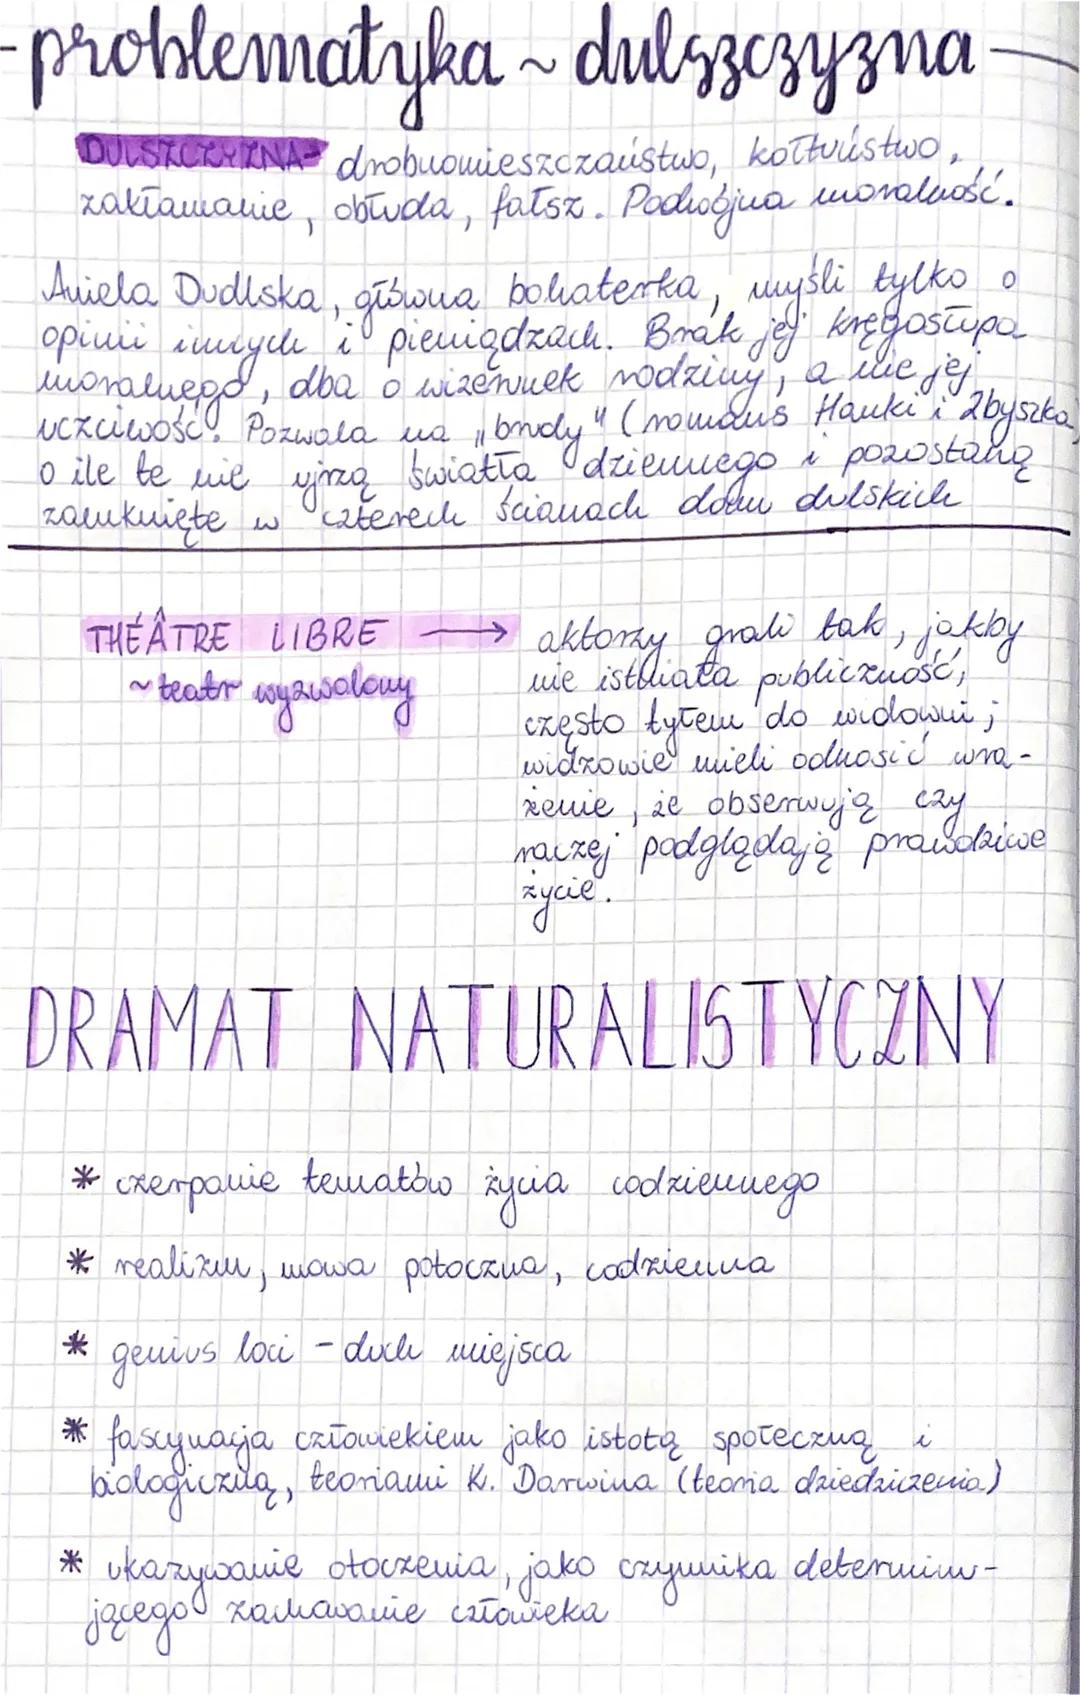 - problematyka ~ dulszczyzna -
DULSZCZYZNA- drobnomieszczaństwo, kołtuństwo,
zakłamanie, obłuda, fałsz. Podwójna moralność.
Aniela Dudlska, główna bohaterka, myśli tylko o
opinii innych i pieniądzach. Brak jej kręgosłupa
moralnego, dba o wizerunek rodziny, a nie jej
uczciwość. Pozwala na „brudy" (romans Hanki i Zbyszka)
o ile te nie ujrzą światła dziennego i pozostaną
zamknięte w czterech ścianach domu dulskich
THÉÂTRE LIBRE → aktorzy grali tak, jakby
~ teatr wyzwolony nie istniała publiczność,
często tyłem do widowni;
widzowie mieli odnosić wra-
żenie, że obserwują czy
raczej podglądają prawdziwe
życie.
DRAMAT NATURALISTYCZNY
* czerpanie tematów życia codziennego
* realizm, mowa potoczna, codzienna
* genius loci - duch miejsca
* fascynacja człowiekiem jako istotą społeczną i
biologiczną, teoriami K. Darwina (teoria dziedziczenia)
* ukazywanie otoczenia, jako czynnika determinu-
jącego zachowanie człowieka